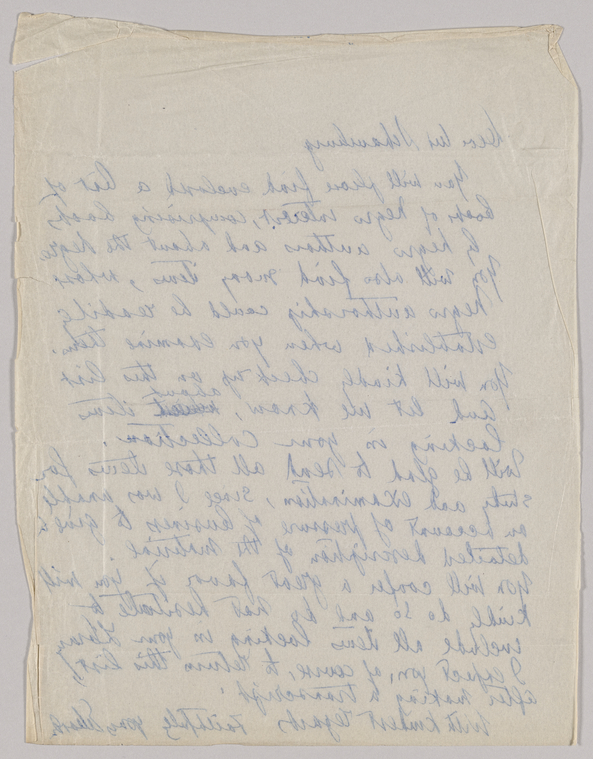 Dear Mr Schomburg
You will please find enclosed a list of
books of Negro interest, comprising books
by Negro authors and about the Negro
You will also find many items, whose
Negro authorship could be readily
established when you examine them.
You will kindly check up on this list
and let me know, about items
lacking in your Collection.
Will be glad to send all those items for
study and examination, since I was unable
on account of pressure of business to give a
detailed description of the material.
You will confer a great favor if you will
kindly do so and do not hesitate to
include all items lacking in your Library
I expect you, of course, to return this list,
after making a transcript.
With kindest regards Faithfully yours,